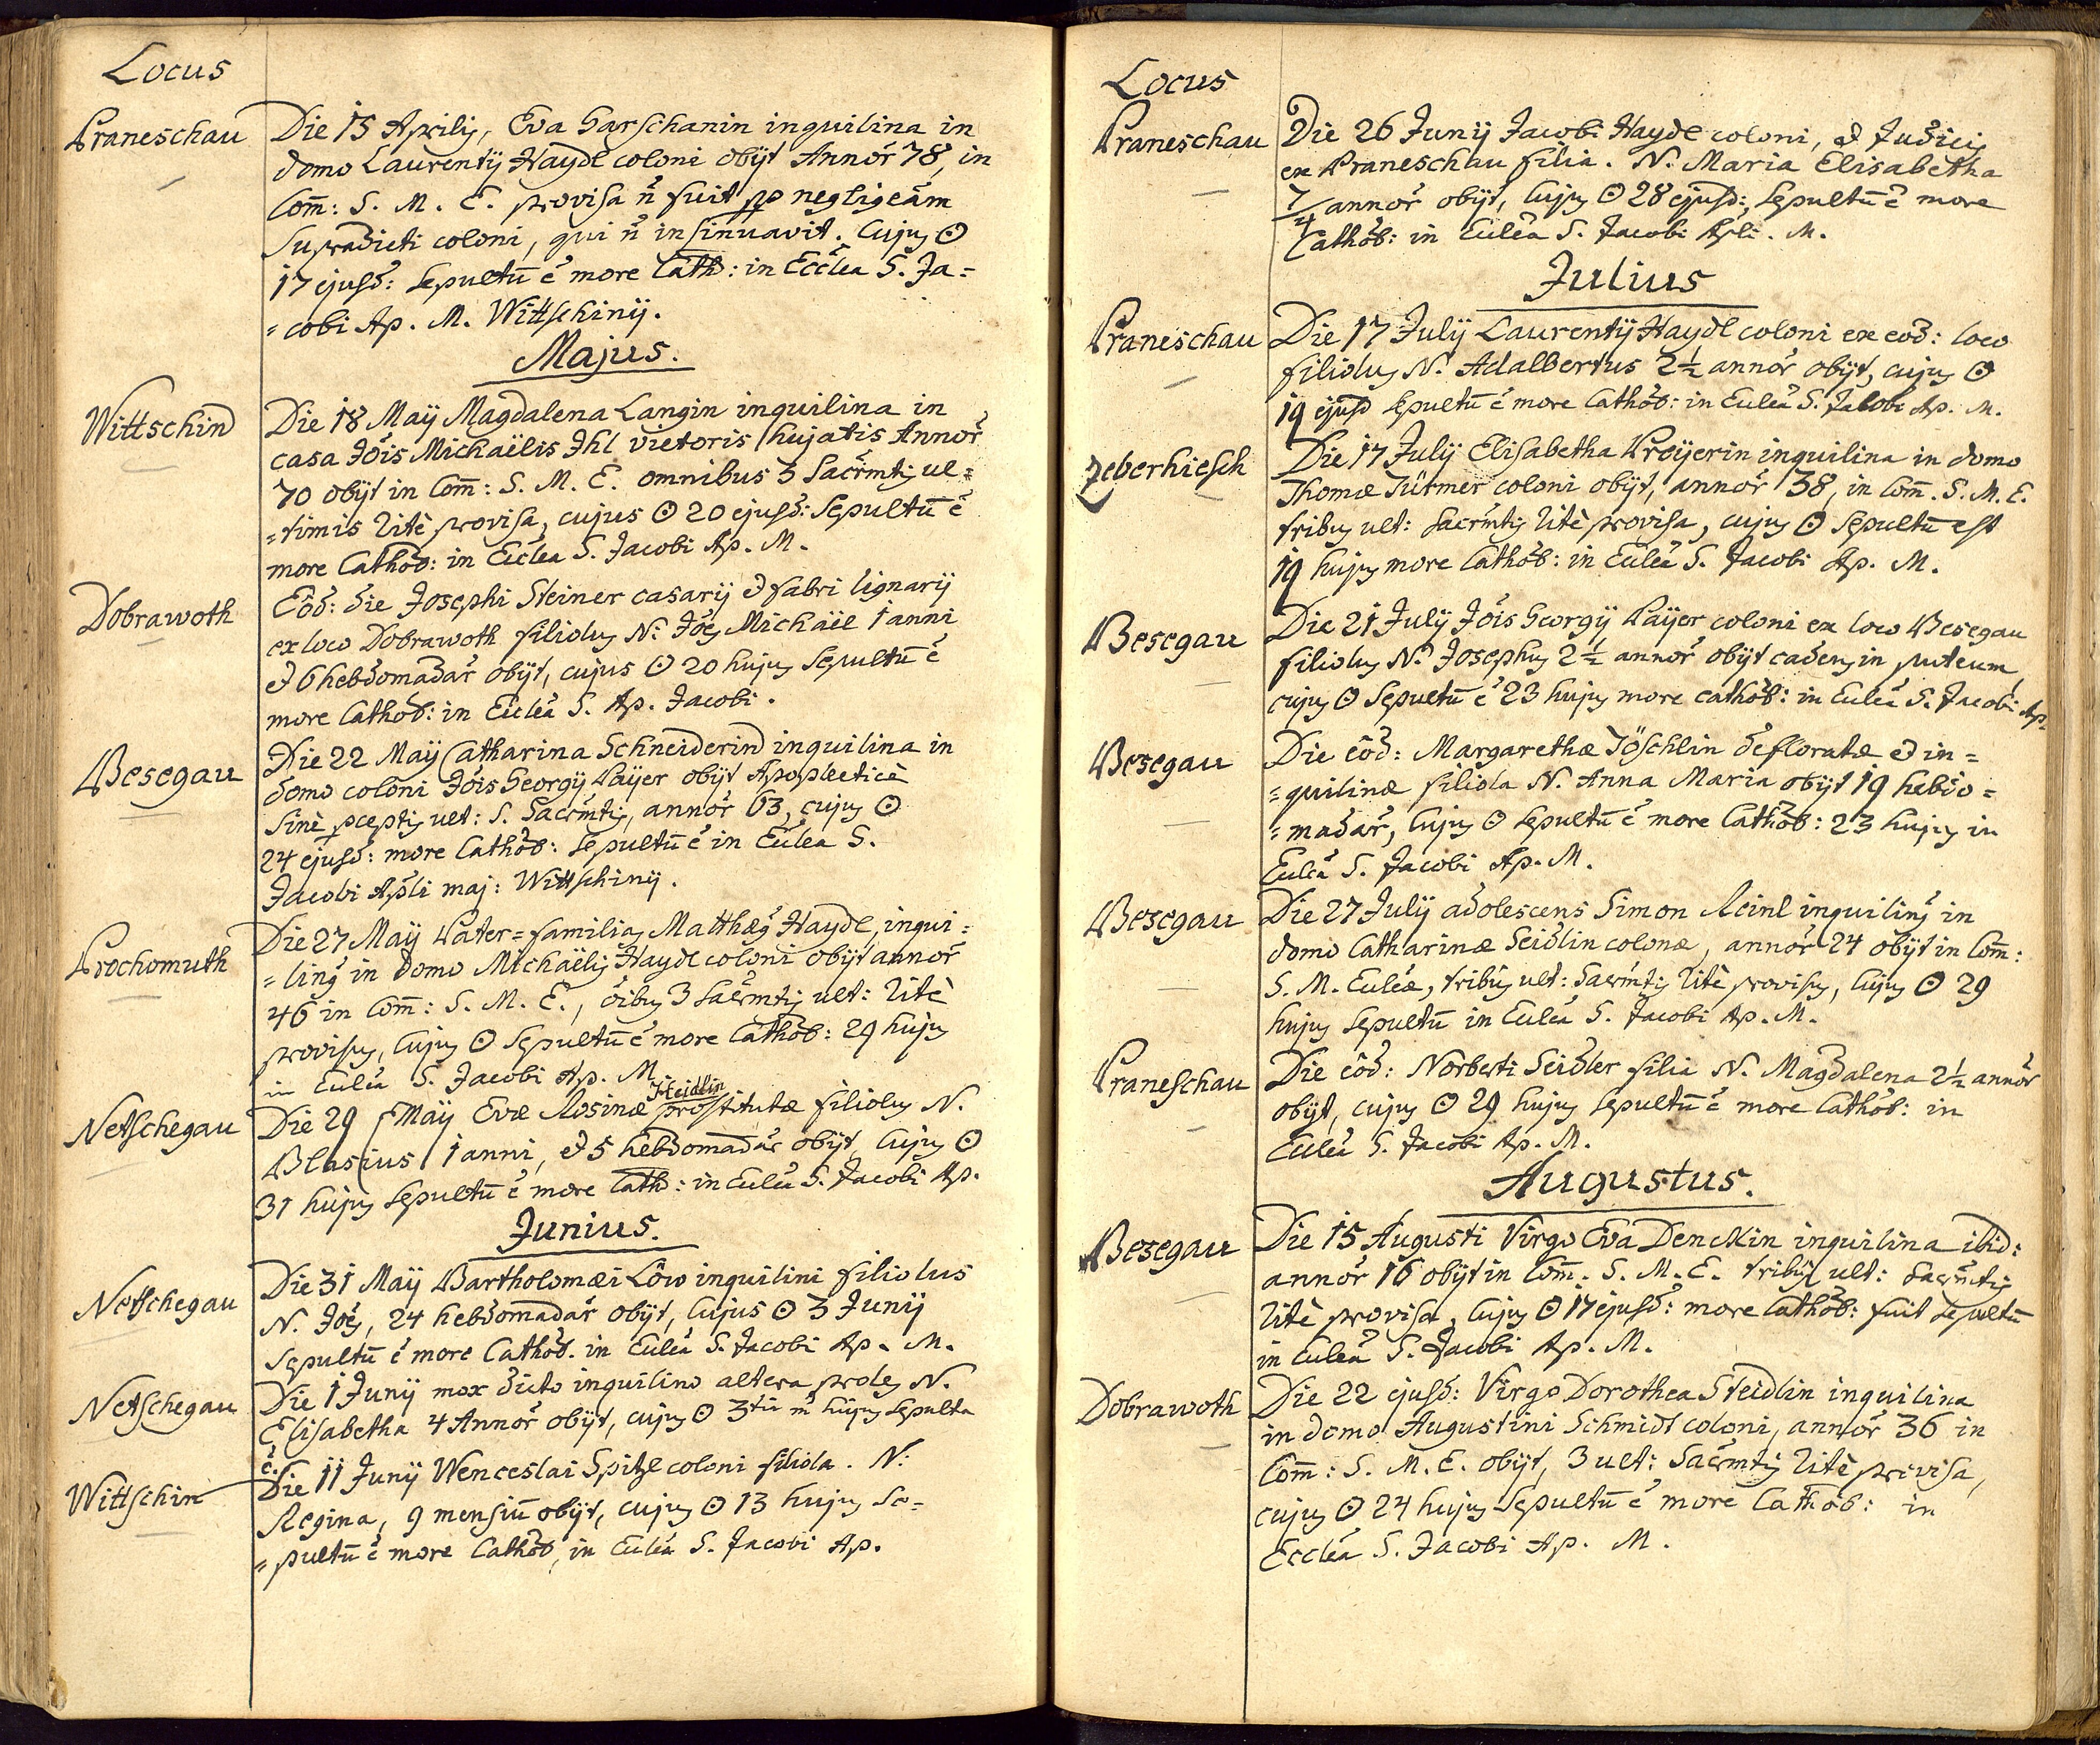 Locus
Praneschau Die 15 Aprilis, Eva Garschanin inquilina in
domo Laurentÿ Haydl coloni obÿt Annor̃ 78, in
Com̄: S. M. E. provisa ñ fuit pp negligeãm
Supradicti coloni, qui ñ insinuavit. Cujus ⊙
17 ejusd: Sepultū ẽ more Cath: in Ecclẽa S. Ja=
=cobi Ap. M. Wittschinÿ.
Majus.
Wittschin Die 18 Maÿ Magdalena Langin inquilina in
casa Jõis Michaëlis Ihl vietoris hujatis Annor̃
70 obÿt in Com̄: S. M. E. omnibus 3 Sacr̃mtis ul=
=timis ritè provisa, cujus ⊙ 20 ejusd: Sepultū ẽ
more Cathol: in Ecclẽa S. Jacobi Ap. M.
Dobrawoth Eõd: die Josephi Steiner casarÿ & fabri lignarÿ
ex loco Dobrawoth filiolus N: Jões Michaël 1 anni
& 6 hebdomadar̃ obÿt, cujus ⊙ 20 hujus Sepultū ẽ
more Cathol: in Ecclẽa S. Ap. Jacobi.
Besegau Die 22 Maÿ Catharina Schneiderin inquilina in
domo coloni Jõis Georgÿ Paÿer obÿt Apoplecticè
Sinè pceptis ult: S. Sacr̃mtis, annor̃ 63, cujus ⊙
24 ejusd: more Cathol: Sepultū ẽ in Ecclẽa S.
Jacobi Apl̃i maj: Wittschinÿ.
Prochomuth Die 27 Maÿ Pater=familias Matthæus Haydl, inqui=
=linus in domo Michaëlis Haydl coloni obÿt annor̃
46 in Com̄: S. M. E., õibus 3 Sacr̃mtis ult: ritè
provisus, Cujus ⊙ Sepultū ẽ more Cathol: 29 hujus
in Ecclẽa S. Jacobi Ap. M.
Heidlin
Netschegau Die 29 Maÿ Evæ Rosinæ prostitutæ filiolus N.
Blasius 1 anni, & 5 hebdomadar̃ obÿt, Cujus ⊙
31 hujus Sepultū ẽ more Cath: in Ecclẽa S. Jacobi Ap.
Junius.
Netschegau Die 31 Maÿ Bartholomæi Löw inquilini filiolus
N. Jões, 24 hebdomadar̃ obÿt, Cujus ⊙ 3 Junÿ
Sepultū ẽ more Cathol. in Ecclẽa S. Jacobi Ap. M.
Netschegau Die 1 Junÿ mox dicto inquilino altera proles N.
Elisabetha 4 Annor̃ obÿt, cujus ⊙ 3tia hujus Sepulta
ẽ.
Wittschin Die 11 Junÿ Wenceslai Spitzl coloni filiola. N:
Regina, 9 mensiū obÿt, cujus ⊙ 13 hujus Se=
=pultū ẽ more Cathol, in Ecclẽa S. Jacobi Ap.
Locus
Praneschau Die 26 Junÿ Jacobi Haydl coloni, & Judicis
ex Praneschau filia. N. Maria Elisabetha
7/4 annor̃ obÿt, Cujus ⊙ 28 ejusd:, Sepultū ẽ more
Cathol: in Ecclẽa S. Jacobi Apl̃i. M.
Julius
Praneschau Die 17 Julÿ Laurentÿ Haydl coloni ex eod: loco
filiolus N. Adalbertus 2½ annor̃ obÿt, cujus ⊙
19 ejusd Sepultū ẽ more Cathol: in Ecclẽa S. Jacobi Ap. M.
Zeberhiesch Die 17 Julÿ Elisabetha Preÿerin inquilina in domo
Thomæ Türmer coloni obÿt, annor̃ 38, in Com̄. S. M. E.
tribus ult: Sacr̃mtis ritè provisa, cujus ⊙ Sepultū est
19 hujus more Cathol: in Ecclẽa S. Jacobi Ap. M.
Besegau Die 21 Julÿ Jõis Georgÿ Paÿer coloni ex loco Besegau
filiolus N. Josephus 2½ annor̃ obÿt cadens in puteum,
cujus ⊙ Sepultū ẽ 23 hujus more cathol: in Ecclẽa S. Jacobi Ap.
Besegau Die eõd: Margarethæ Töschlin defloratæ & in=
=quilinæ filiola N. Anna Maria obÿt 19 hebdo=
=madar̃, Cujus ⊙ Sepultū ẽ more Cathol: 23 hujus in
Ecclẽa S. Jacobi Ap. M.
Besegau Die 27 Julÿ adolescens Simon Reinl inquilinus in
domo Catharinæ Seidlin colonæ, annor̃ 24 obÿt in Com̄:
S. M. Ecclẽæ, tribus ult: Sacr̃mtis ritè provisus, Cujus ⊙ 29
hujus Sepultū in Ecclẽa S. Jacobi Ap. M.
Praneschau Die eõd: Norberti Seidler filia N. Magdalena 2½ annor̃
obÿt, cujus ⊙ 29 hujus Sepultū ẽ more Cathol: in
Ecclẽa S. Jacobi Ap. M.
Augustus.
Besegau Die 15 Augusti Virgo Eva Denckin inquilina ibid:
annor̃ 16 obÿt in Com̄. S. M. E. tribus ult: Sacr̃mtis
ritè provisa, Cujus ⊙ 17 ejusd: more Cathol: fuit Sepultū
in Ecclẽa S. Jacobi Ap. M.
Dobrawoth Die 22 ejusd: Virgo Dorothea Steidlin inquilina
in domo Augustini Schmidt coloni, annor̃ 36 in
Com̄: S. M. E. obÿt, 3 ult: Sacr̃mtis ritè provisa,
cujus ⊙ 24 hujus Sepultū ẽ more Cathol: in
Ecclẽa S. Jacobi Ap. M.